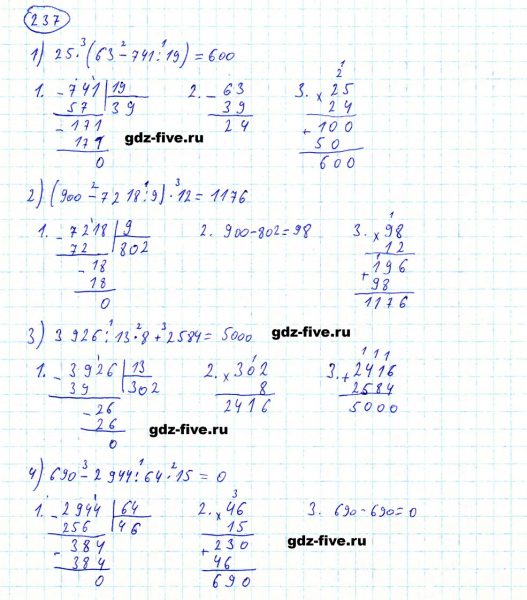 237
1) 25 · (63 - 741 : 19) = 600
1. - 741 | 19
57 | 39
- 171
171
0
2. - 63
39
24
3. × 25
24
+ 100
50
600
gdz-five.ru
2) (900 - 7218 : 9) · 12 = 1176
1. - 7218 | 9
72 | 802
- 18
18
0
2. 900 - 802 = 98
3. × 98
12
+ 196
98
1176
3) 3926 : 13 · 8 + 2584 = 5000
gdz-five.ru
1. - 3926 | 13
39 | 302
- 26
26
0
2. × 302
8
2416
3. + 2416
2584
5000
gdz-five.ru
4) 690 - 2944 : 64 · 15 = 0
1. - 2944 | 64
256 | 46
- 384
384
0
2. × 46
15
+ 230
46
690
3. 690 - 690 = 0
gdz-five.ru